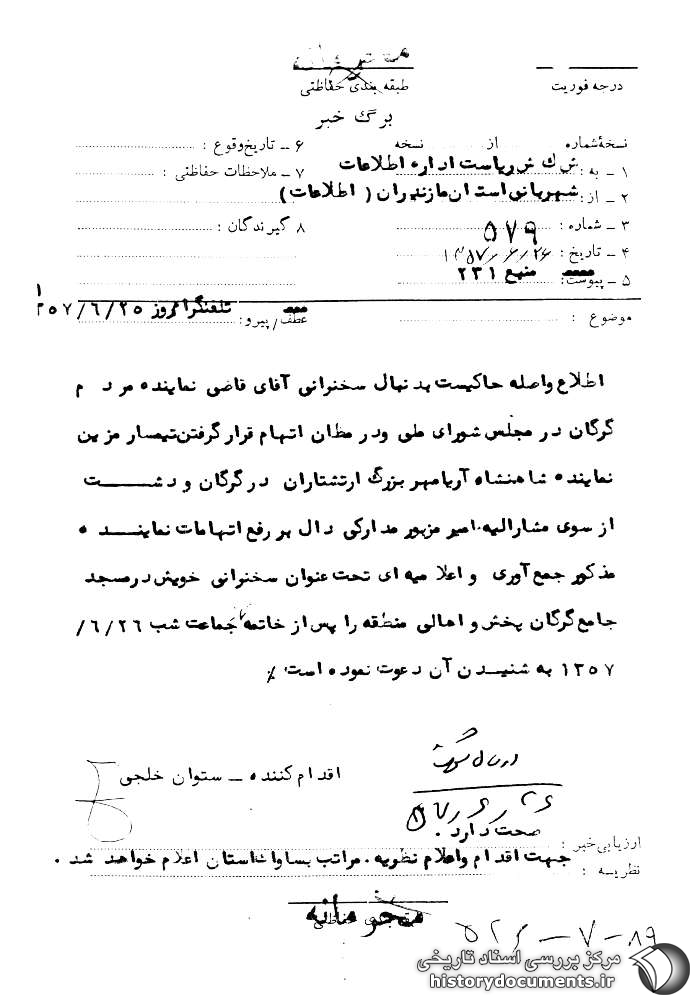 محرمانه
درجه فوریت
طبقه بندی حفاظتی
برگ خبر
نسخهٔ شماره از نسخه
۱ ـ به : ش ک ش ریاست اداره اطلاعات
۲ ـ از : شهربانی استان مازندران ( اطلاعات )
۳ ـ شماره : ۵۷۹
۴ ـ تاریخ : ۱۳۵۷/۶/۲۶
۵ ـ پیوست : منبع ۲۳۱
۶ ـ تاریخ وقوع :
۷ ـ ملاحظات حفاظتی :
۸ گیرندگان :
عطف/ پیرو : تلفنگرام روز ۱۳۵۷/۶/۲۵
موضوع :
اطلاع واصله حاکیست بدنبال سخنرانی آقای قاضی نماینده مردم
گرگان در مجلس شورای ملی و در مظان اتهام قرار گرفتن تیمسار مزین
نماینده شاهنشاه آریامهر بزرگ ارتشتاران در گرگان و دشت
از سوی مشارالیه. امیر مزبور مدارکی دال بر رفع اتهامات نماینده
مذکور جمع آوری و اعلامیه ای تحت عنوان سخنرانی خویش در مسجد
جامع گرگان پخش و اهالی منطقه را پس از خاتمه جماعت شب ۲۶/۶/
۱۳۵۷ به شنیدن آن دعوت نموده است ٪
ارسال گشت
۵۷/۶/۲۶
اقدام کننده ـ ستوان خلجی
ارزیابی خبر : صحت دارد .
نظریه : جهت اقدام و اعلام نظریه . مراتب بساواک استان اعلام خواهد شد .
محرمانه
طبقه بندی حفاظتی
مرکز بررسی اسناد تاریخی
historydocuments.ir